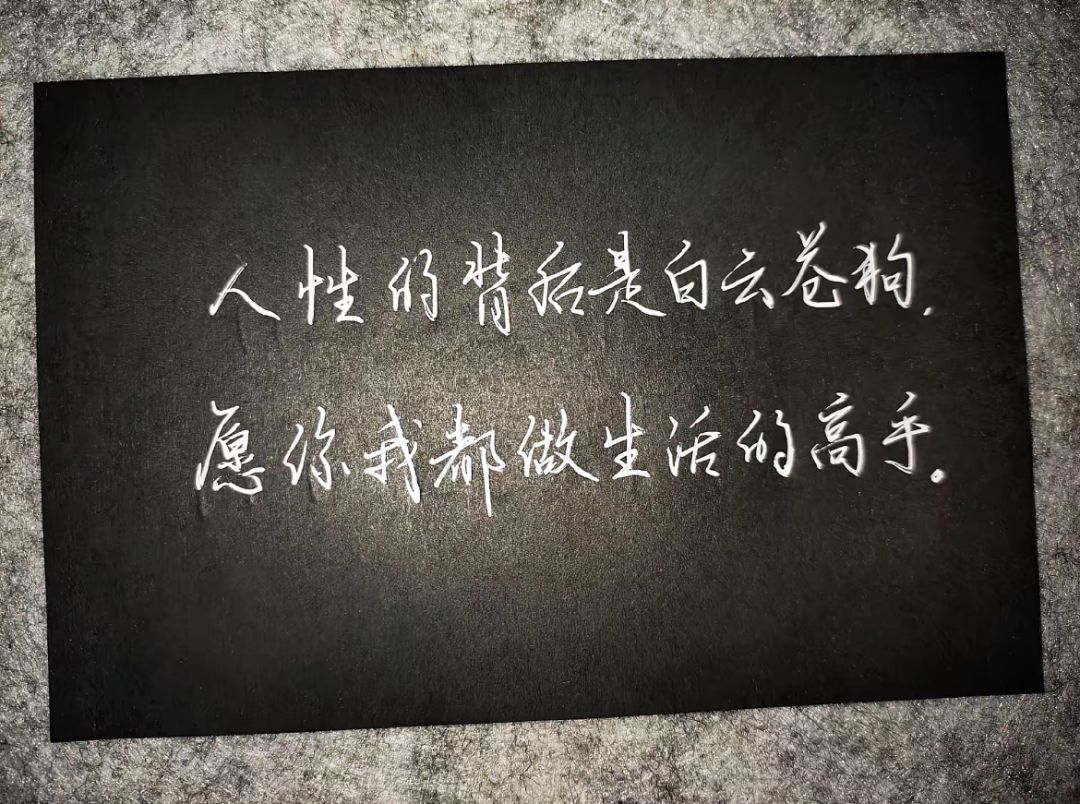 人性的背后是白云苍狗，
愿你我都做生活的高手。